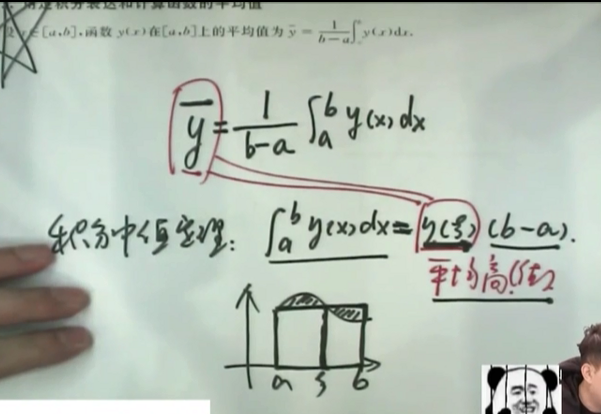 用定积分表达和计算函数的平均值
x∈[a,b],函数 y(x)在[a,b]上的平均值为 ȳ = 1/(b−a) ∫ y(x)dx.
ȳ = 1/(b-a) ∫_a^b y(x)dx
积分中值定理: ∫_a^b y(x)dx = y(ξ)(b-a).
平均高(值)
a ξ b